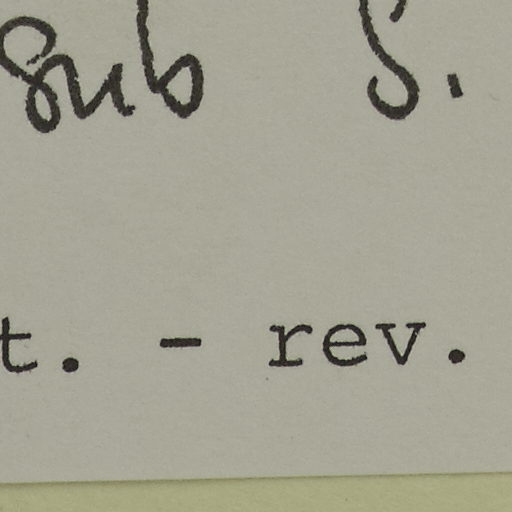 sub S.
t. - rev.